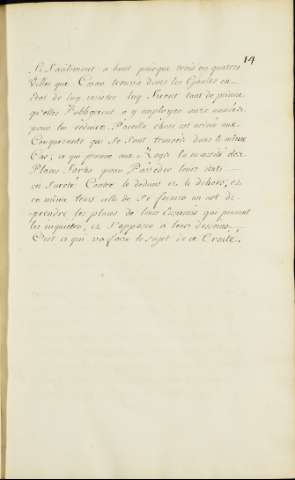 14
Le Sentiment a huit puisque trois ou quatre
Villes que César trouva dans les Gaules en
état de luy résister luy firent tant de peine
qu'elles l'obligerent a y employer onze années
pour les réduire. Pareille chose est arrivé aux
Conquerants qui se sont trouvés dans le même
Cas; ce qui prouve aux Roys la nécessité des
Places fortes pour Posseder leurs états
en Sureté Contre le dedans et le dehors, et
en même tems celle de se faire un art de
prendre les places de leurs Ennemis qui peuvent
les inquietter, et s'opposer a leurs desseins.
C'est ce qui va faire le sujet de ce Traité.